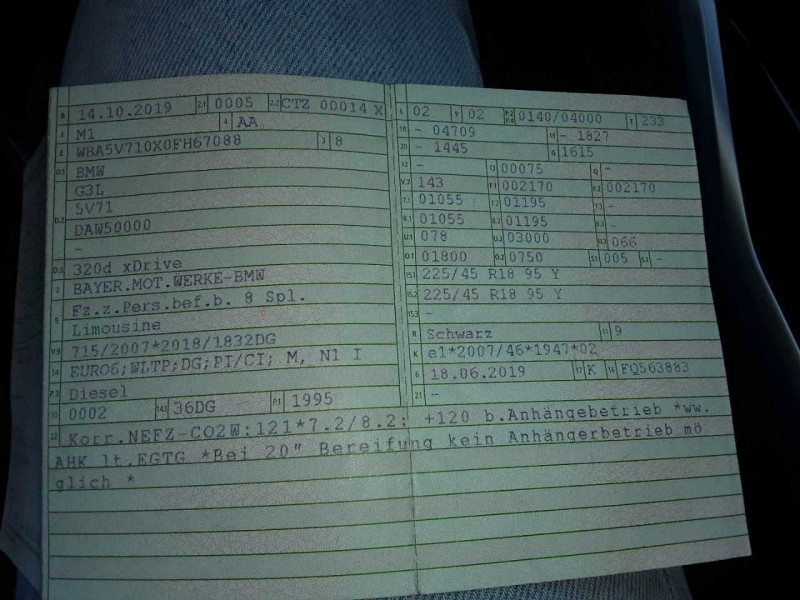 B 14.10.2019 2.1 0005 2.2 CTZ 00014 X
J M1 4 AA
E WBA5V710X0FH67088 3 8
D.1 BMW
D.2 G3L
5V71
DAW50000
-
D.3 320d xDrive
2 BAYER.MOT.WERKE-BMW
5 Fz.z.Pers.bef.b. 8 Spl.
Limousine
V.9 715/2007*2018/1832DG
14 EURO6;WLTP;DG;PI/CI; M, N1 I
P.3 Diesel
10 0002 14.1 36DG P.1 1995
L 02 9 02 P.2 P.4 0140/04000 T 233
18 - 04709 19 - 1827
20 - 1445 G 1615
12 - 13 00075 Q -
V.7 143 F.1 002170 F.2 002170
7.1 01055 7.2 01195 7.3 -
8.1 01055 8.2 01195 8.3 -
U.1 078 U.2 03000 U.3 066
O.1 01800 O.2 0750 S.1 005 S.2 -
15.1 225/45 R18 95 Y
15.2 225/45 R18 95 Y
15.3 -
R Schwarz 11 9
K e1*2007/46*1947*02
6 18.06.2019 17 K 16 FQ563883
21 -
22 Korr.NEFZ-CO2W:121*7.2/8.2: +120 b.Anhängebetrieb *ww.
AHK lt.EGTG *Bei 20" Bereifung kein Anhängerbetrieb mö
glich *